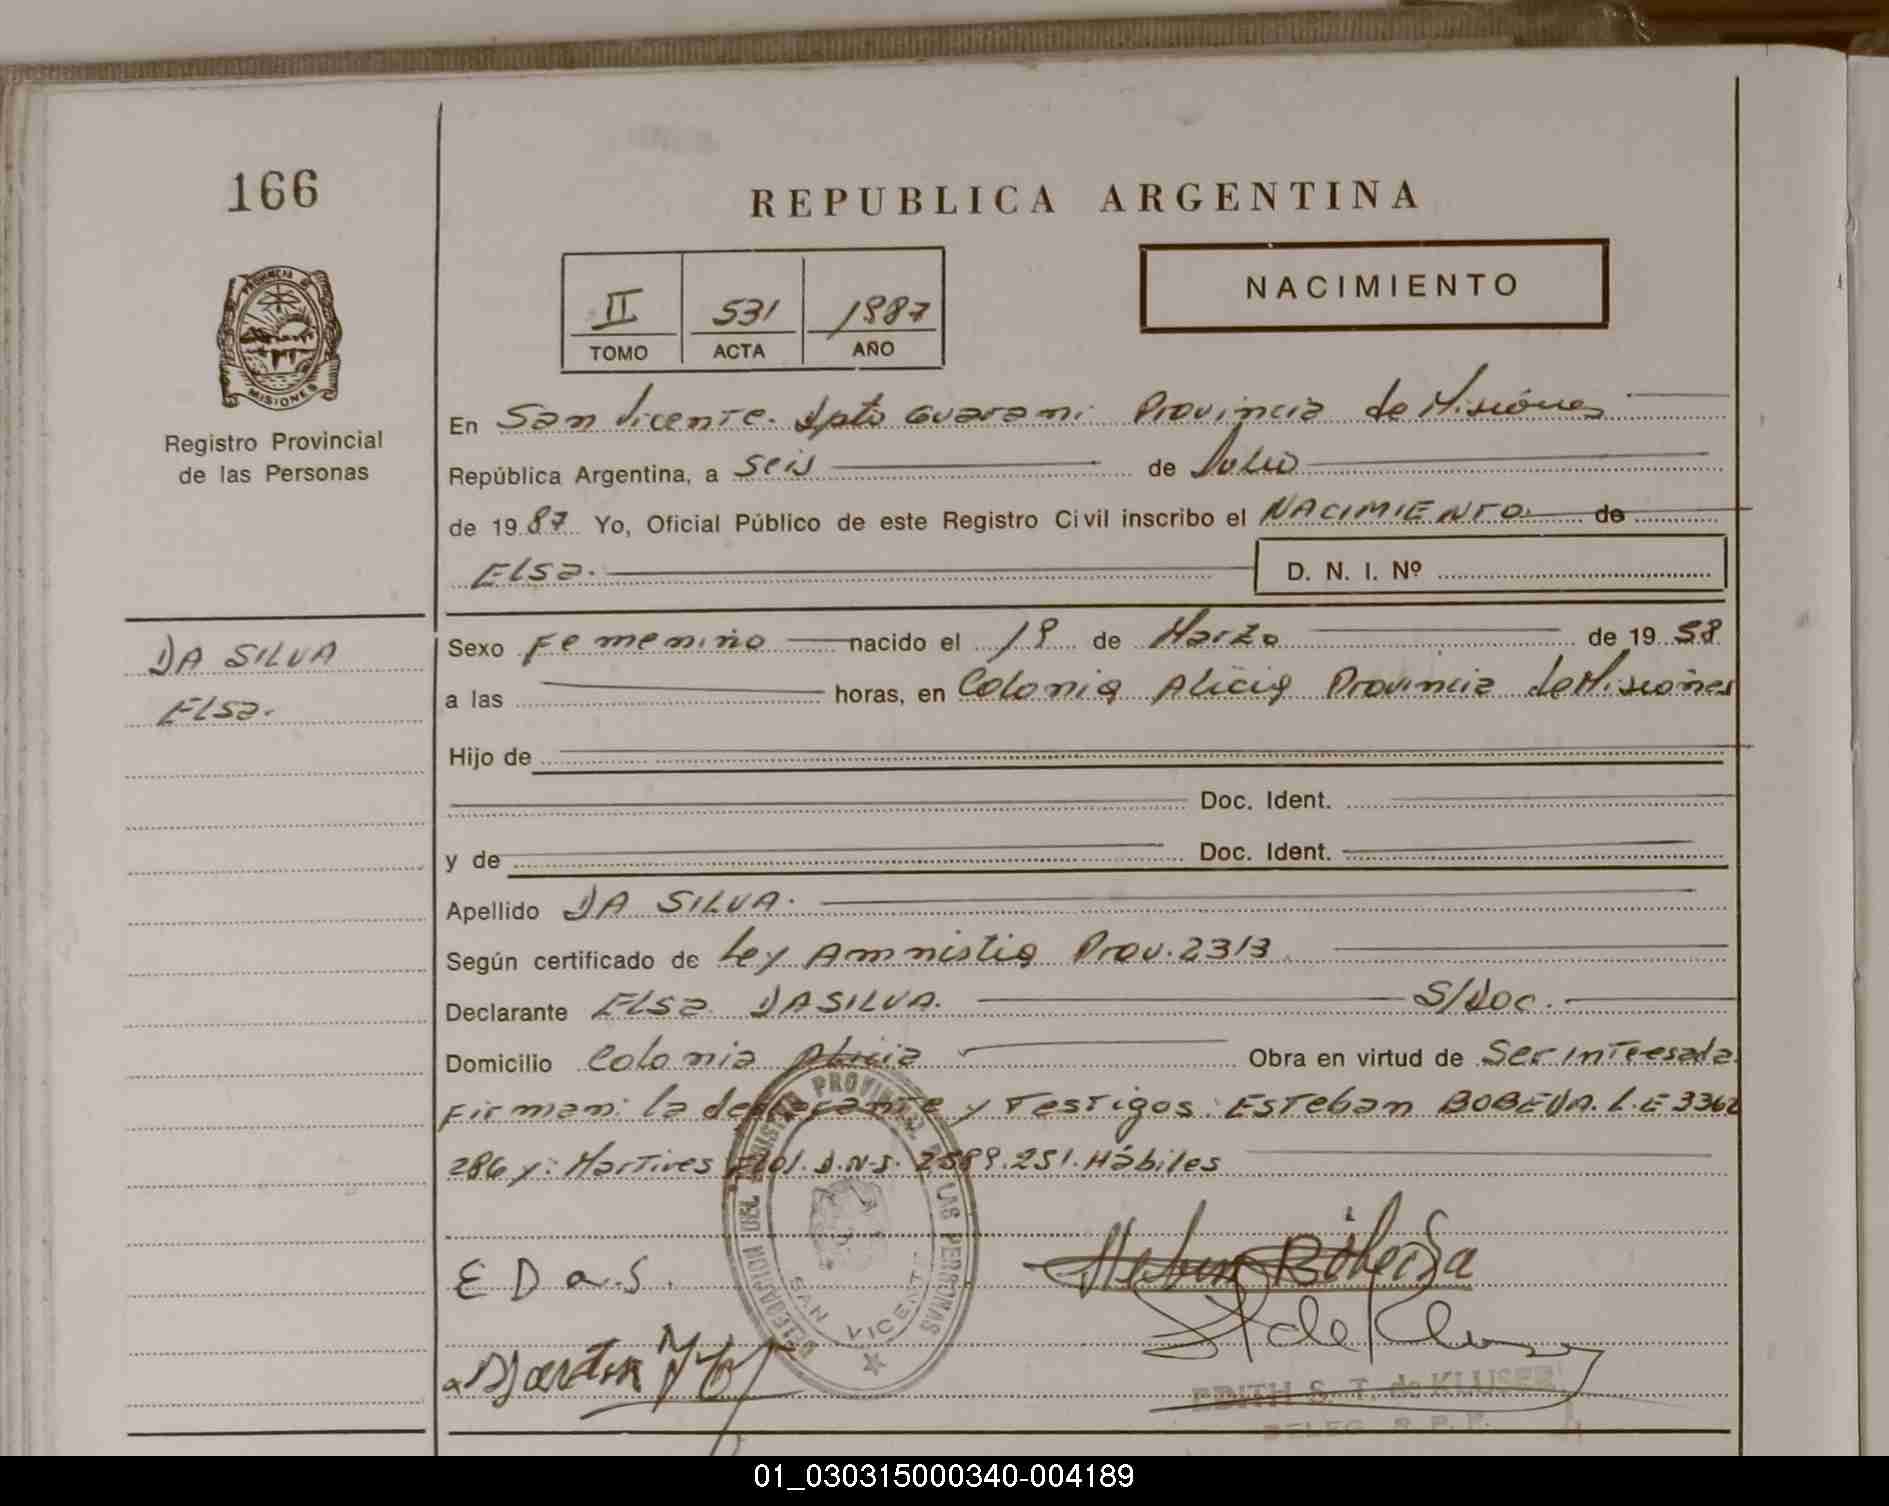 166
REPUBLICA ARGENTINA
PROVINCIA DE
MISIONES
Registro Provincial
de las Personas
II 531 1987
TOMO ACTA AÑO
NACIMIENTO
En San Vicente. Dpto Guarani Provincia de Misiónes
República Argentina, a Seis de Julio
de 19 87 Yo, Oficial Público de este Registro Civil inscribo el NACIMIENTO. de
Elsa.
D. N. I. Nº
DA SILVA
Elsa.
Sexo Femenino nacido el 19 de Marzo de 19 58
a las horas, en Colonia Alicia Provincia de Misiones
Hijo de
Doc. Ident.
y de Doc. Ident.
Apellido DA SILVA.
Según certificado de Ley Amnistia Prov. 2313
Declarante Elsa DA SILVA. S/Doc.
Domicilio Colonia Alicia Obra en virtud de Ser interesada
Firman: la declarante y Testigos: Esteban BOBEDA. L.E 3362
286 y: Martires 2589.251. Hábiles
DELEGACION DEL REGISTRO PROVINCIAL DE LAS PERSONAS
SAN VICENTE
E D a. S.
EDITH S. T. de KLUSER
DELEG. R. P. P.
01_030315000340-004189